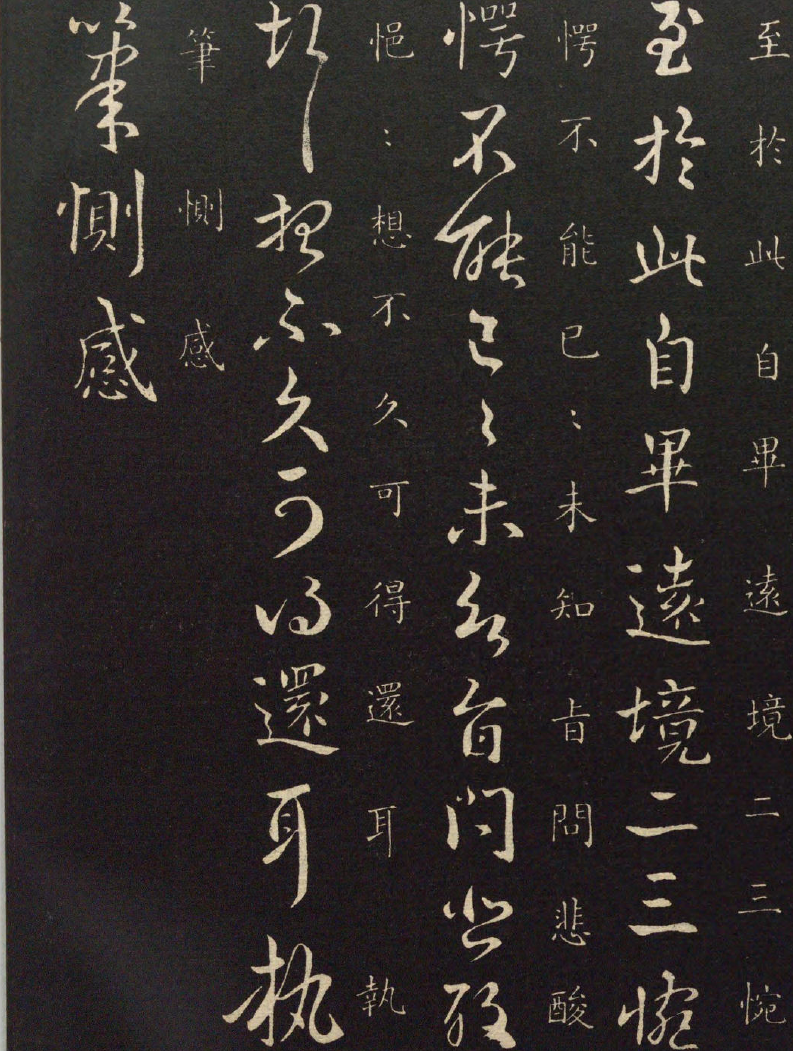 至於此自畢遠境二三惋
至於此自畢遠境二三惋
愕不能已:未知旨問悲酸
愕不能已〻未知旨問悲酸
悒:想不久可得還耳執
悒〻想不久可得還耳執
筆惻感
筆惻感